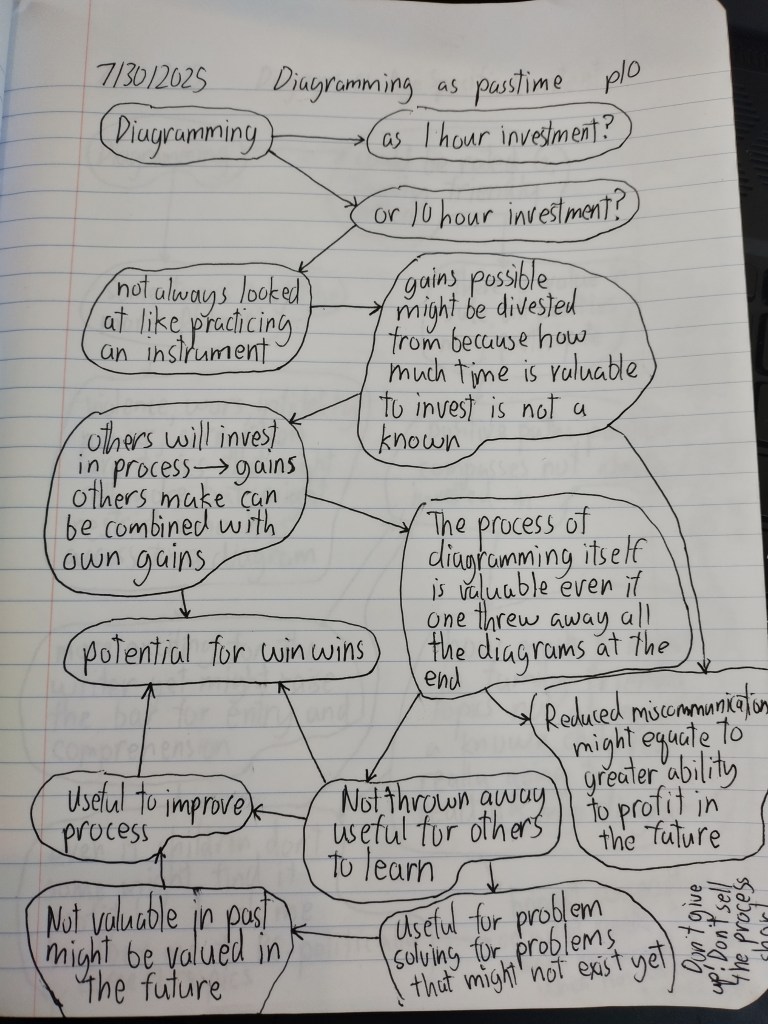 7/30/2025 Diagramming as passtime p10
Diagramming
as 1 hour investment?
or 10 hour investment?
not always looked
at like practicing
an instrument
gains possible
might be divested
from because how
much time is valuable
to invest is not a
known
others will invest
in process → gains
others make can
be combined with
own gains
The process of
diagramming itself
is valuable even if
one threw away all
the diagrams at the
end
potential for win wins
Reduced miscommunication
might equate to
greater ability
to profit in
the future
Useful to improve
process
Not thrown away
useful for others
to learn
Not valuable in past
might be valued in
the future
Useful for problem
solving for problems
that might not exist yet
Don't give
up! Don't sell
the process
short